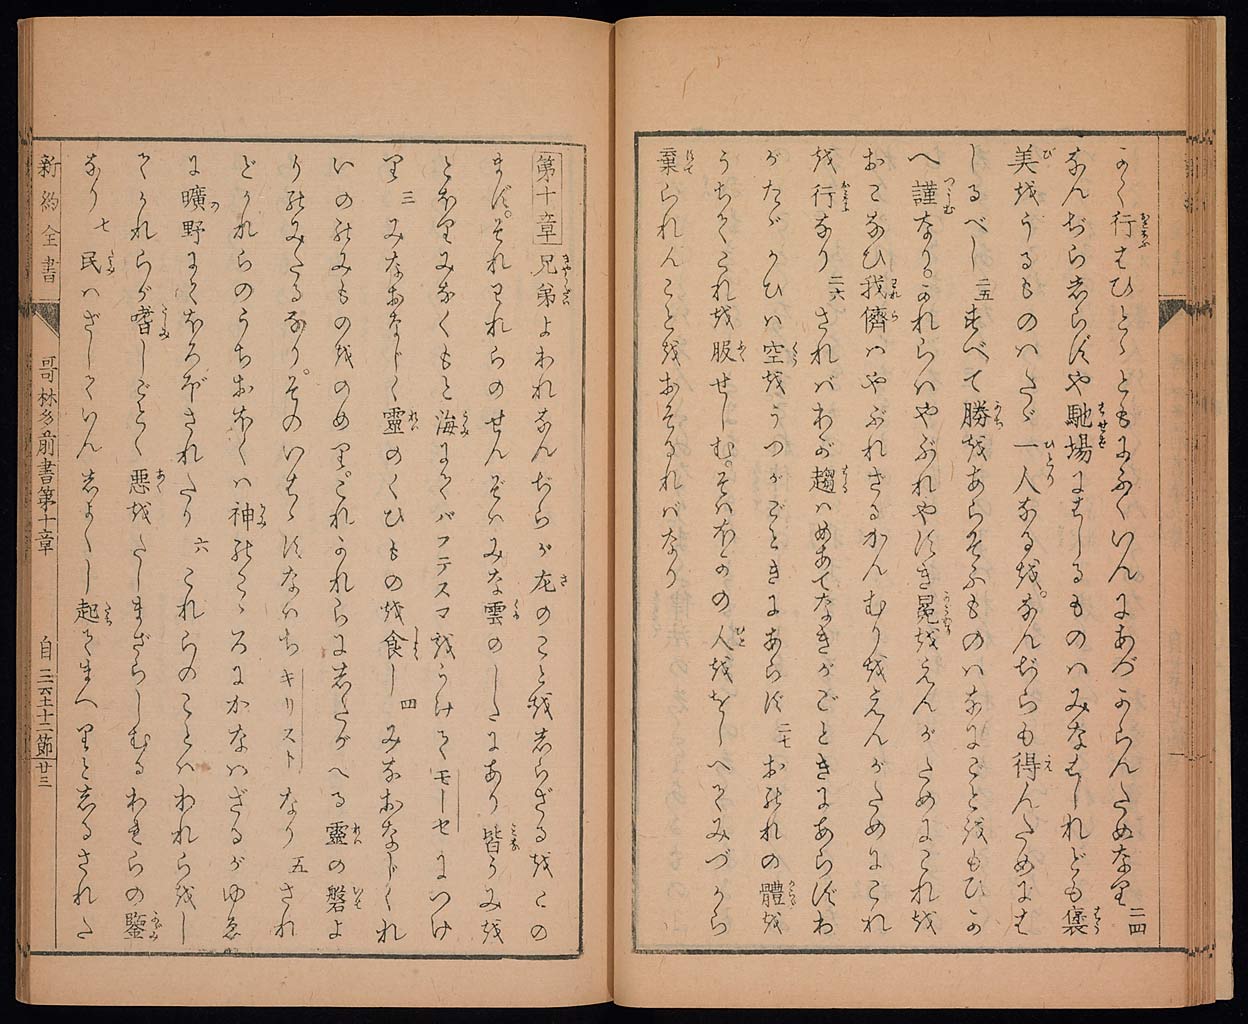 かく行はひとゝともにふくいんにあづからんため奈里 二四
なんぢら志らずや馳場にはしるものハみなはしれども褒
美をうるものハたゞ一人なるを。なんぢらも得んためには
しるべし 二五 すべて勝をあらそふものハなにごとをもひか
へ謹なり。かれらハやぶれやすき冕をえんがためにこれを
おこなひ我儕ハやぶれざるかんむりをえんがためにこれ
を行なり 二六 さればわが趨ハめあてなきがごときにあらずわ
がたゝかひハ空をうつがごときにあらず 二七 おのれの體を
うちてこれを服せしむ。そハほかの人ををしへてみづから
棄られんことをおそるればなり
第十章 兄弟よわれなんぢらが左のことを志らざるをこの
まず。それわれらのせんぞハみな雲のしたにあり皆うみを
とほりみなくもと海にてバフテスマをうけてモーセにつけ
り 三 みなおなじく靈のくひものを食し 四 みなおなじくれ
いののみものをのめり。これかれらに志たがへる靈の磐よ
りのみたるなり。そのいはゝすなハちキリストなり 五 され
どかれらのうちおほくハ神のこゝろにかなハざるがゆゑ
に曠野にてほろぼされたり 六 これらのことハわれらをし
てかれらが嗜しごとく惡をたしまざらしむるわれらの鑒
なり 七 民ハざしていん志よくし起てまへりと志るされた
新約全書
哥林多前書第十章
自二六至十二節
廿三